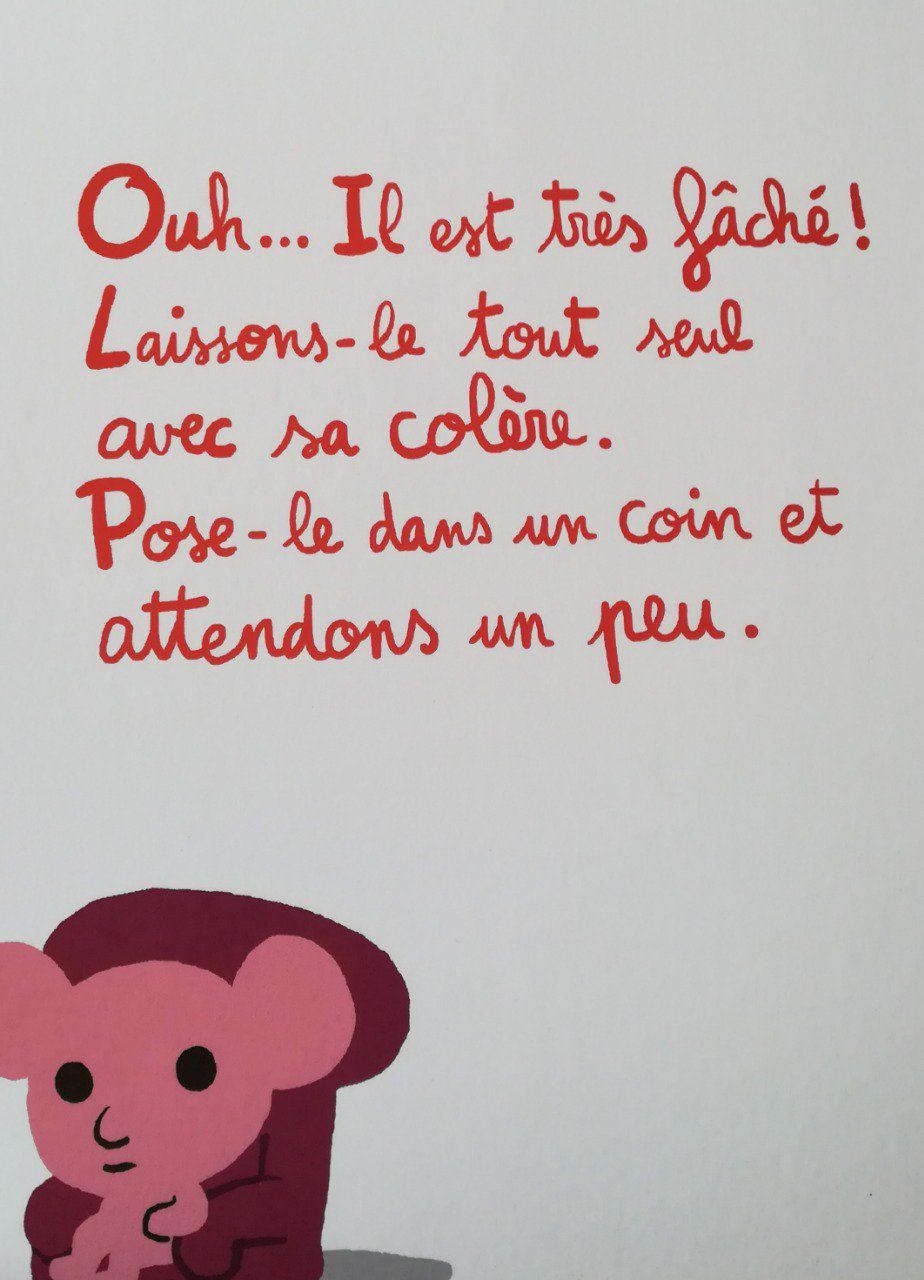 Ouh... Il est très fâché!
Laissons-le tout seul
avec sa colère.
Pose-le dans un coin et
attendons un peu.